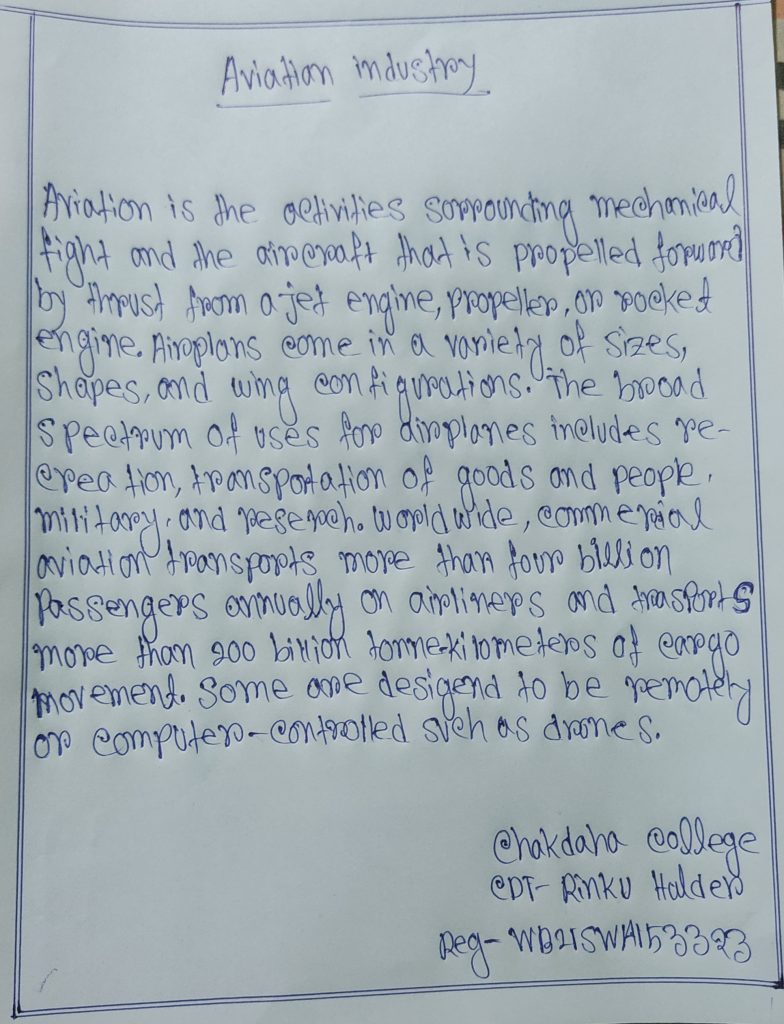 Aviation industry
Aviation is the activities sorrounding mechanical
fight and the aircraft that is propelled forword
by thrust from a jet engine, propeller, or rocket
engine. Airoplans come in a variety of sizes,
Shapes, and wing configurations. The broad
spectrum of uses for airplanes includes re-
creation, transpotation of goods and people,
military, and reserch. World wide, commerial
aviation transports more than four billion
Passengers annually on airliners and trasports
more than 200 billion tonne-kilometers of cargo
movement. Some are desigend to be remotely
or computer-controlled such as drones.
Chakdaha College
CDT- Rinku Halder
Reg-